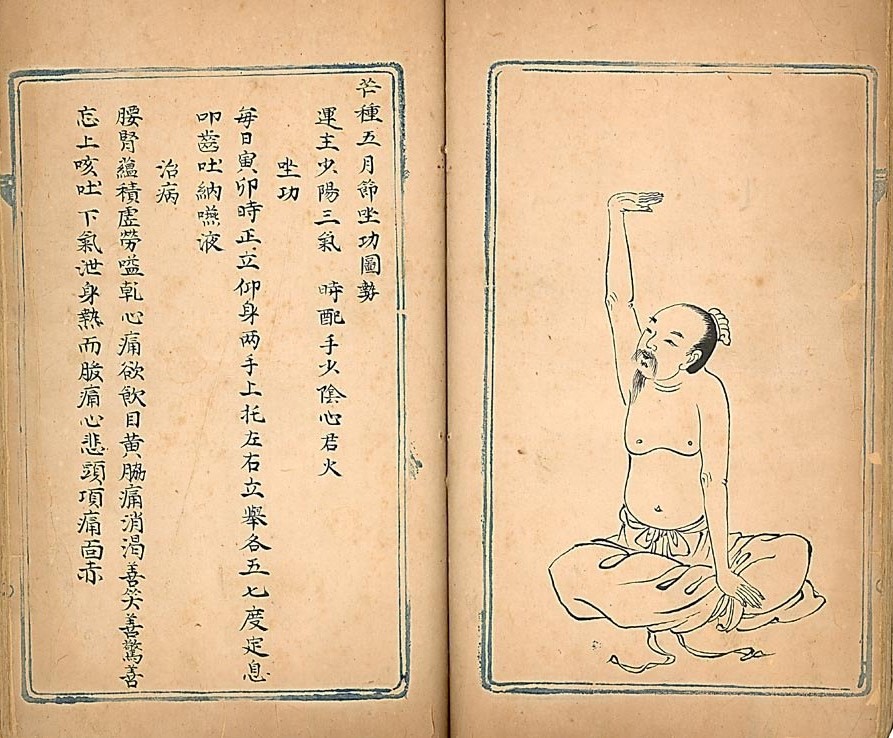 芒種五月節坐功圖勢
運主少陽三氣　時配手少陰心君火
坐功
每日寅卯時正立仰身两手上托左右立舉各五七度定息
叩齒吐納嚥液
治病
腰腎蘊積虛勞嗌乾心痛欲飲目黃脇痛消渴善笑善驚善
忘上咳吐下氣泄身熱而股痛心悲頭項痛面赤